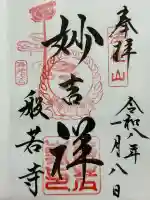 奉拝
令和八年一月八日
妙吉祥
般若寺